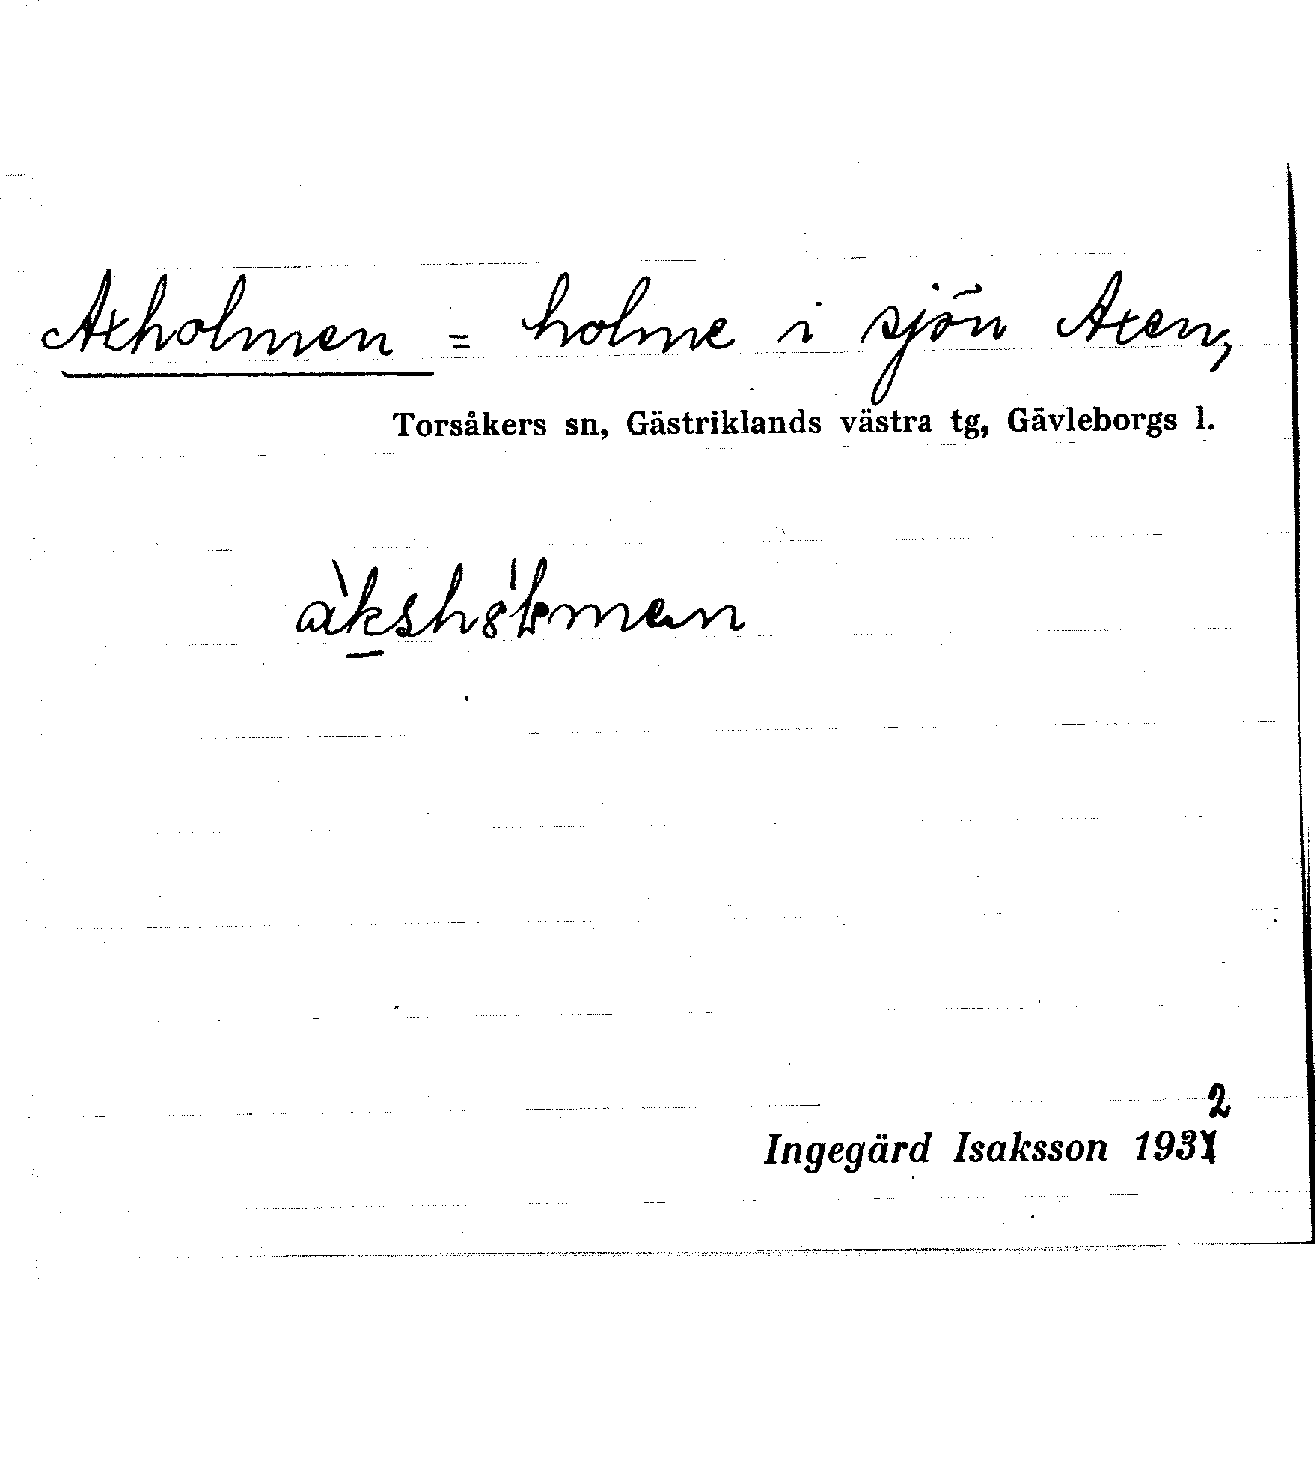 Axholmen = holme i sjön Axen,
Torsåkers sn, Gästriklands västra tg, Gävleborgs l.
Ingegärd Isaksson 1932